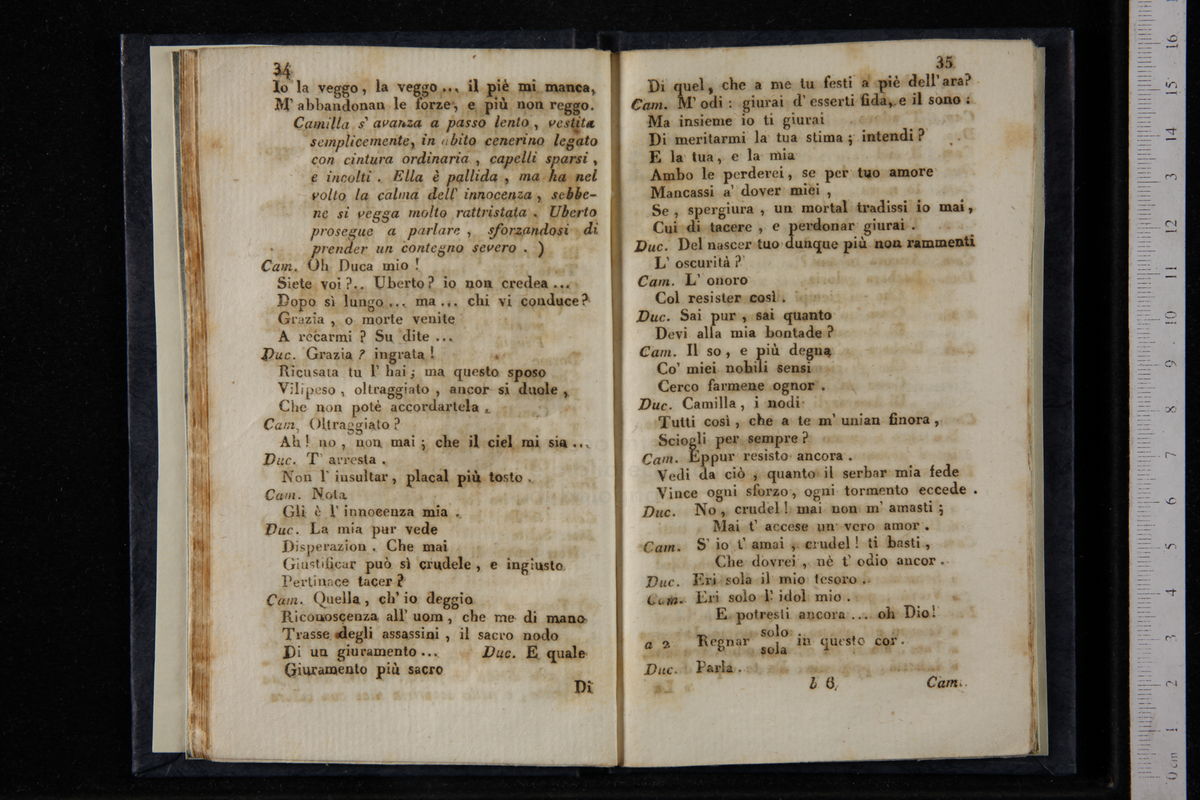 34
Io la veggo, la veggo ... il piè mi manca,
M' abbandonan le forze, e più non reggo.
Camilla s' avanza a passo lento, vestita
semplicemente, in abito cenerino legato
con cintura ordinaria, capelli sparsi,
e incolti. Ella è pallida, ma ha nel
volto la calma dell' innocenza, sebbe-
ne si vegga molto rattristata. Uberto
prosegue a parlare, sforzandosi di
prender un contegno severo. )
Cam. Oh Duca mio!
Siete voi?.. Uberto? io non credea ...
Dopo sì lungo ... ma ... chi vi conduce?
Grazia, o morte venite
A recarmi? Su dite ...
Duc. Grazia? ingrata!
Ricusata tu l' hai; ma questo sposo
Vilipeso, oltraggiato, ancor si duole,
Che non potè accordartela.
Cam. Oltraggiato?
Ah! no, non mai; che il ciel mi sia ...
Duc. T' arresta.
Non l' insultar, placal più tosto.
Cam. Nota
Gli è l' innocenza mia.
Duc. La mia pur vede
Disperazion. Che mai
Giustificar può sì crudele, e ingiusto
Pertinace tacer?
Cam. Quella, ch' io deggio
Riconoscenza all' uom, che me di mano
Trasse degli assassini, il sacro nodo
Di un giuramento ... Duc. E quale
Giuramento più sacro
Di
35
Di quel, che a me tu festi a piè dell' ara?
Cam. M' odi: giurai d' esserti fida, e il sono:
Ma insieme io ti giurai
Di meritarmi la tua stima; intendi?
E la tua, e la mia
Ambo le perderei, se per tuo amore
Mancassi a' dover miei,
Se, spergiura, un mortal tradissi io mai,
Cui di tacere, e perdonar giurai.
Duc. Del nascer tuo dunque più non rammenti
L' oscurità?
Cam. L' onoro
Col resister così.
Duc. Sai pur, sai quanto
Devi alla mia bontade?
Cam. Il so, e più degna
Co' miei nobili sensi
Cerco farmene ognor.
Duc. Camilla, i nodi
Tutti così, che a te m' unian finora,
Sciogli per sempre?
Cam. Eppur resisto ancora.
Vedi da ciò, quanto il serbar mia fede
Vince ogni sforzo, ogni tormento eccede.
Duc. No, crudel! mai non m' amasti;
Mai t' accese un vero amor.
Cam. S' io t' amai, crudel! ti basti,
Che dovrei, nè t' odio ancor.
Duc. Eri sola il mio tesoro.
Cam. Eri solo l' idol mio.
E potresti ancora ... oh Dio!
a 2 Regnar solo sola in questo cor.
Duc. Parla.
b 6 Cam.